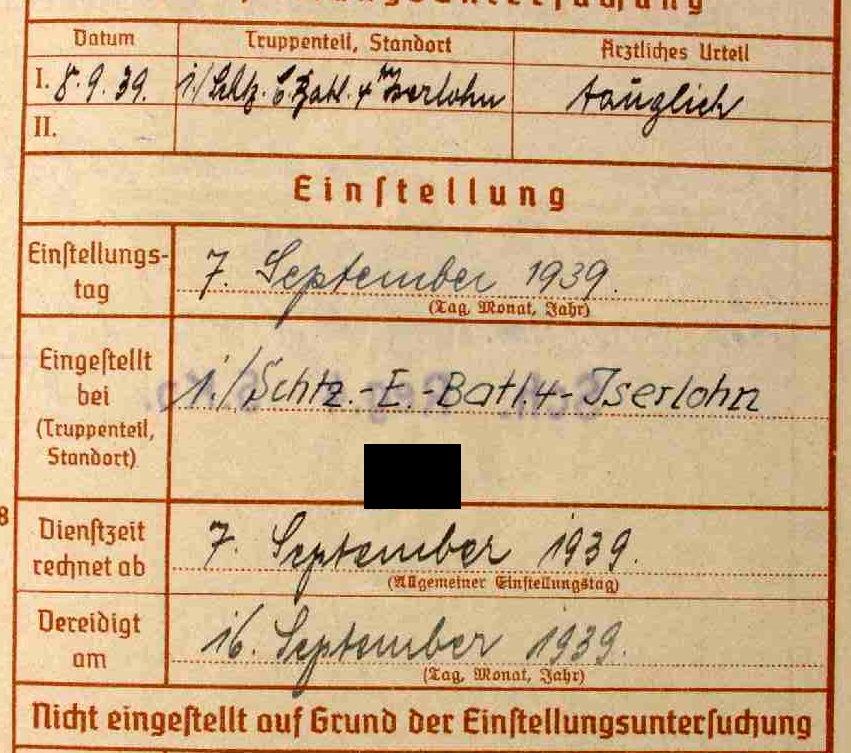 Datum Truppenteil, Standort Ärztliches Urteil
I. 8.9.39. 1./Schtz. E. Batl. 4 Iserlohn tauglich
II.
Einstellung
Einstellungs-
tag
7. September 1939.
(Tag, Monat, Jahr)
Eingestellt
bei
(Truppenteil,
Standort)
1./Schtz.-E.-Batl.4-Iserlohn
8
Dienstzeit
rechnet ab
7. September 1939.
(Allgemeiner Einstellungstag)
Vereidigt
am
16. September 1939.
(Tag, Monat, Jahr)
Nicht eingestellt auf Grund der Einstellungsuntersuchung